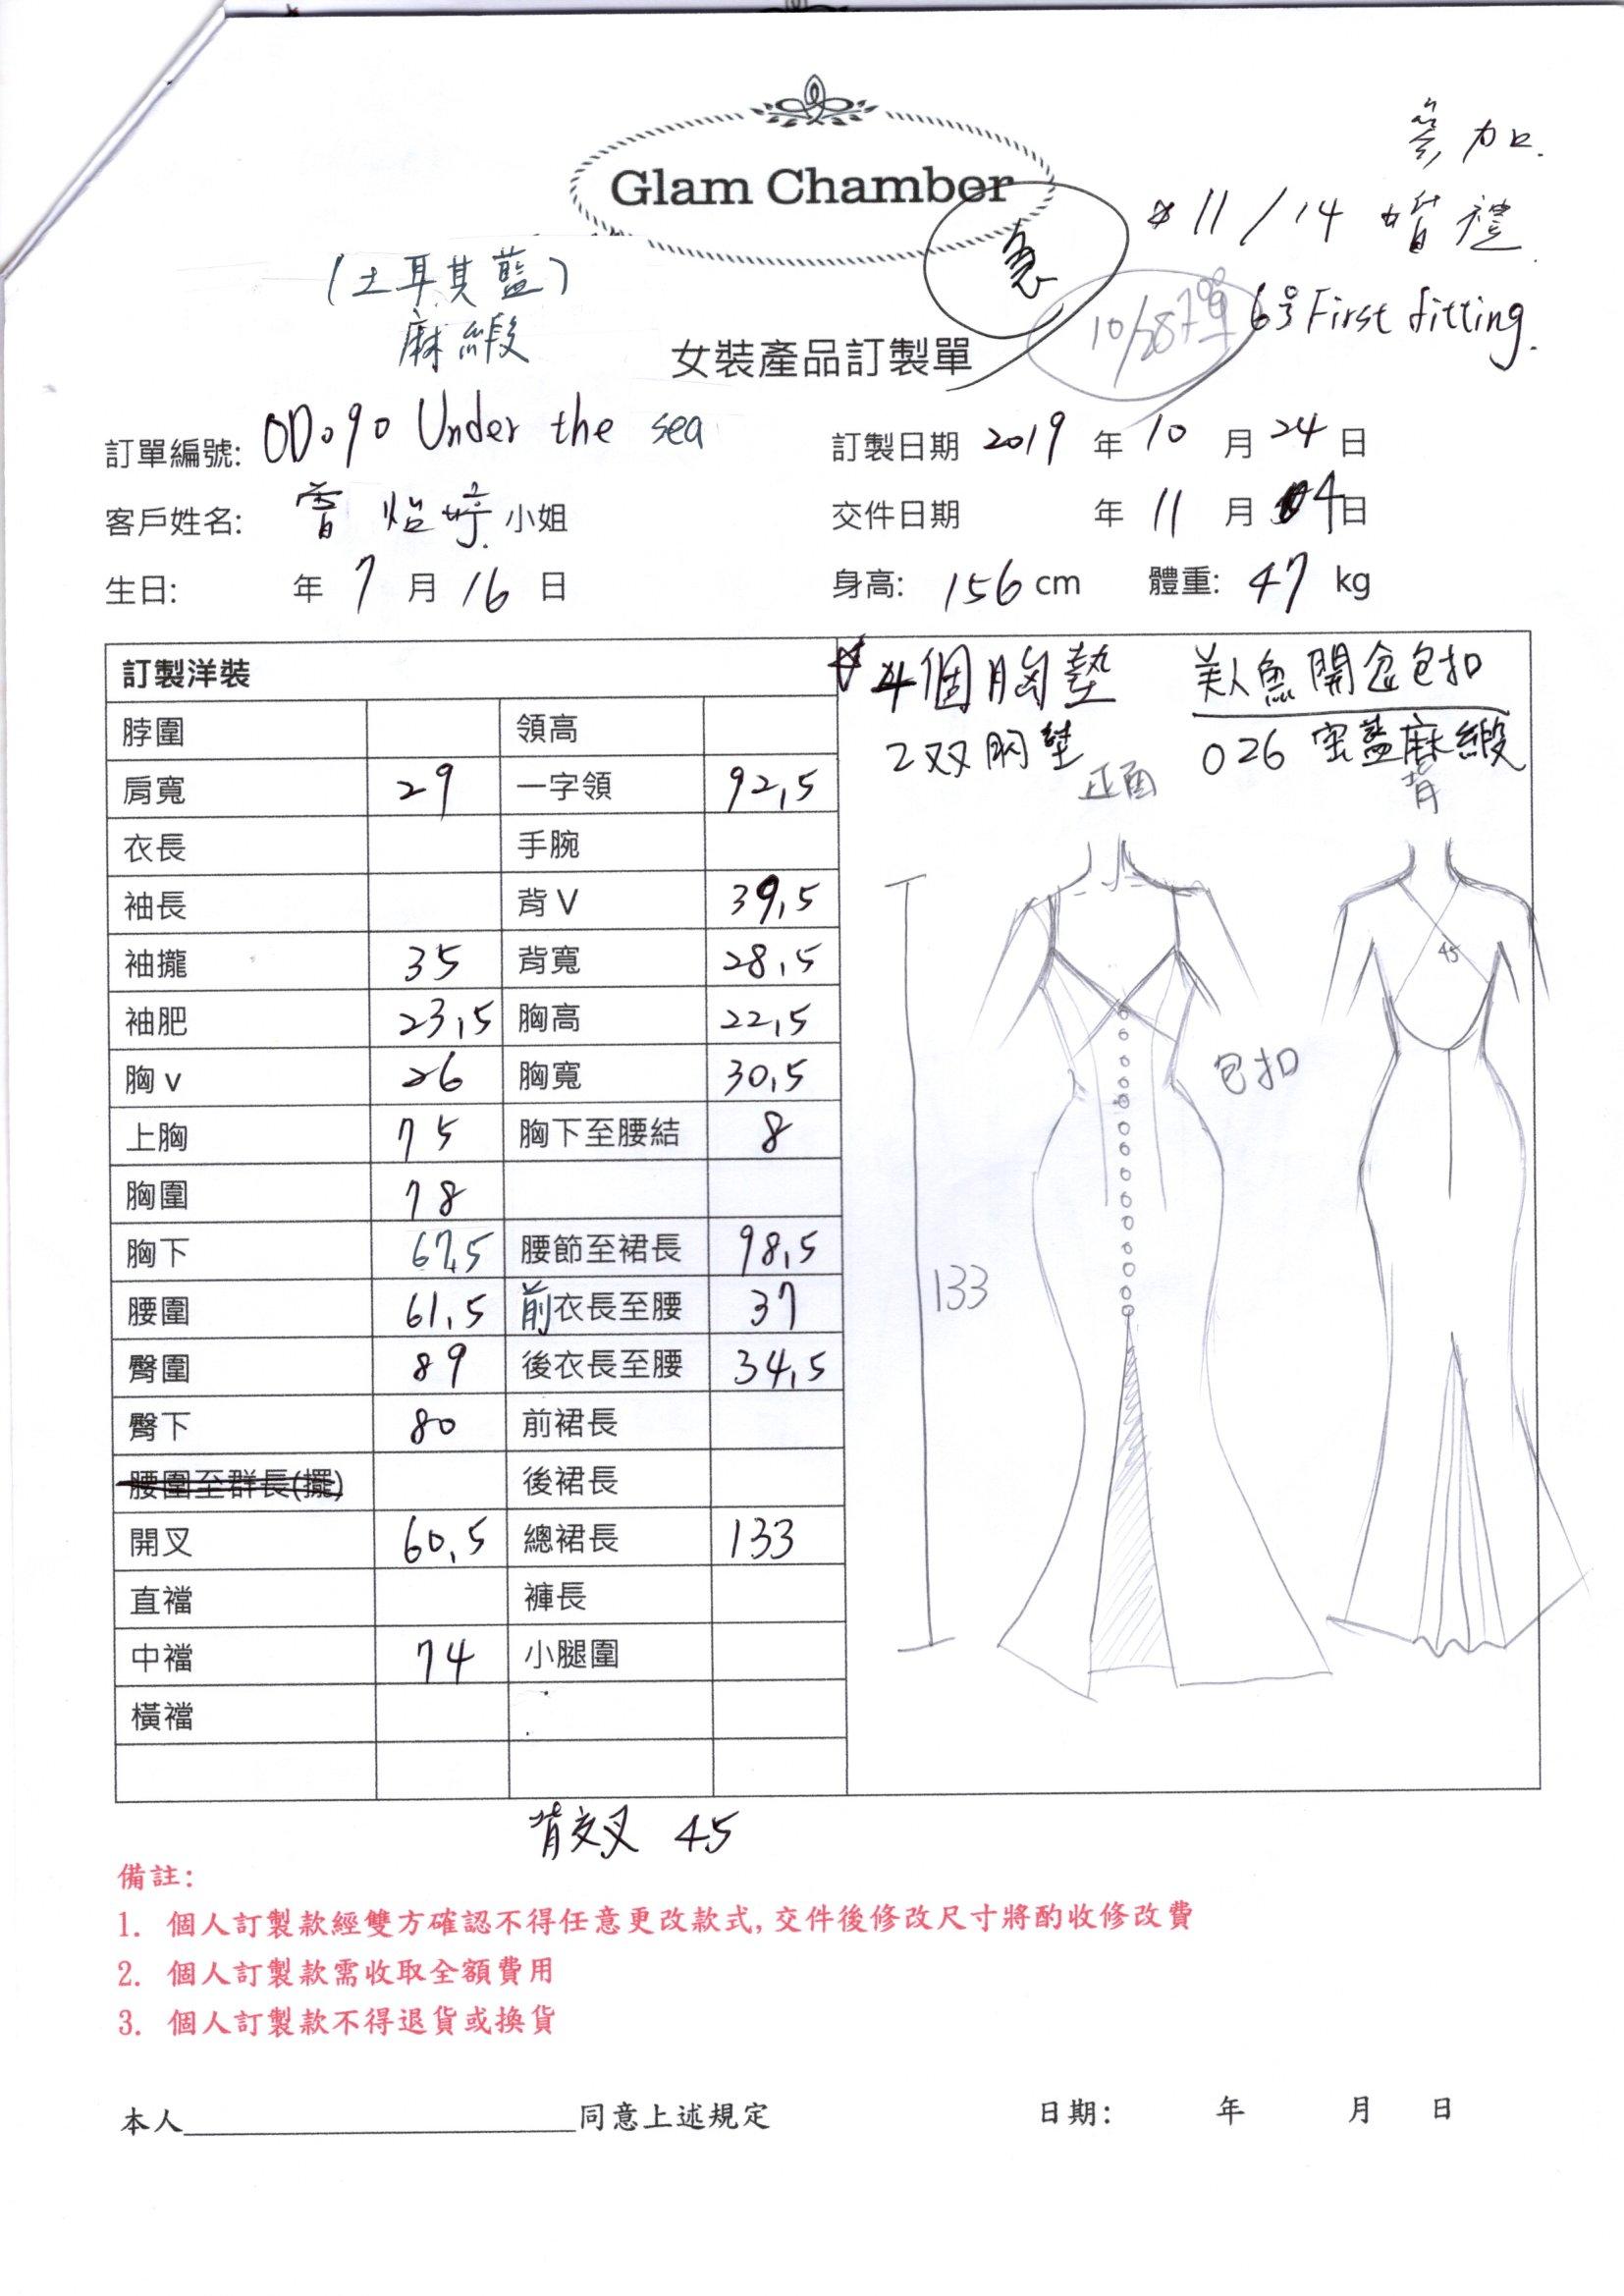 Glam Chamber
參加.
11/14 婚禮
急
(土耳其藍)
麻緞
10/28
6号 First fitting.
女裝產品訂製單
訂單編號: OD090 Under the sea
訂製日期 2019 年 10 月 24 日
客戶姓名: 曾怡婷 小姐
交件日期 年 11 月 4日
生日: 年 7 月 16 日
身高: 156 cm 體重: 47 kg
訂製洋裝
4個胸墊 美人魚開岔包扣
2双胸墊 026 宝藍麻緞
正面 背
脖圍 領高
肩寬 29 一字領 92,5
衣長 手腕
袖長 背V 39,5
袖攏 35 背寬 28,5
袖肥 23,5 胸高 22,5
胸v 26 胸寬 30,5
上胸 75 胸下至腰結 8
胸圍 78
胸下 67,5 腰節至裙長 98,5
腰圍 61,5 前衣長至腰 37
臀圍 89 後衣長至腰 34,5
臀下 80 前裙長
腰圍至群長(擺) 後裙長
開叉 60,5 總裙長 133
直襠 褲長
中襠 74 小腿圍
橫襠
45
包扣
133
背交叉 45
備註:
1. 個人訂製款經雙方確認不得任意更改款式,交件後修改尺寸將酌收修改費
2. 個人訂製款需收取全額費用
3. 個人訂製款不得退貨或換貨
本人 同意上述規定 日期: 年 月 日